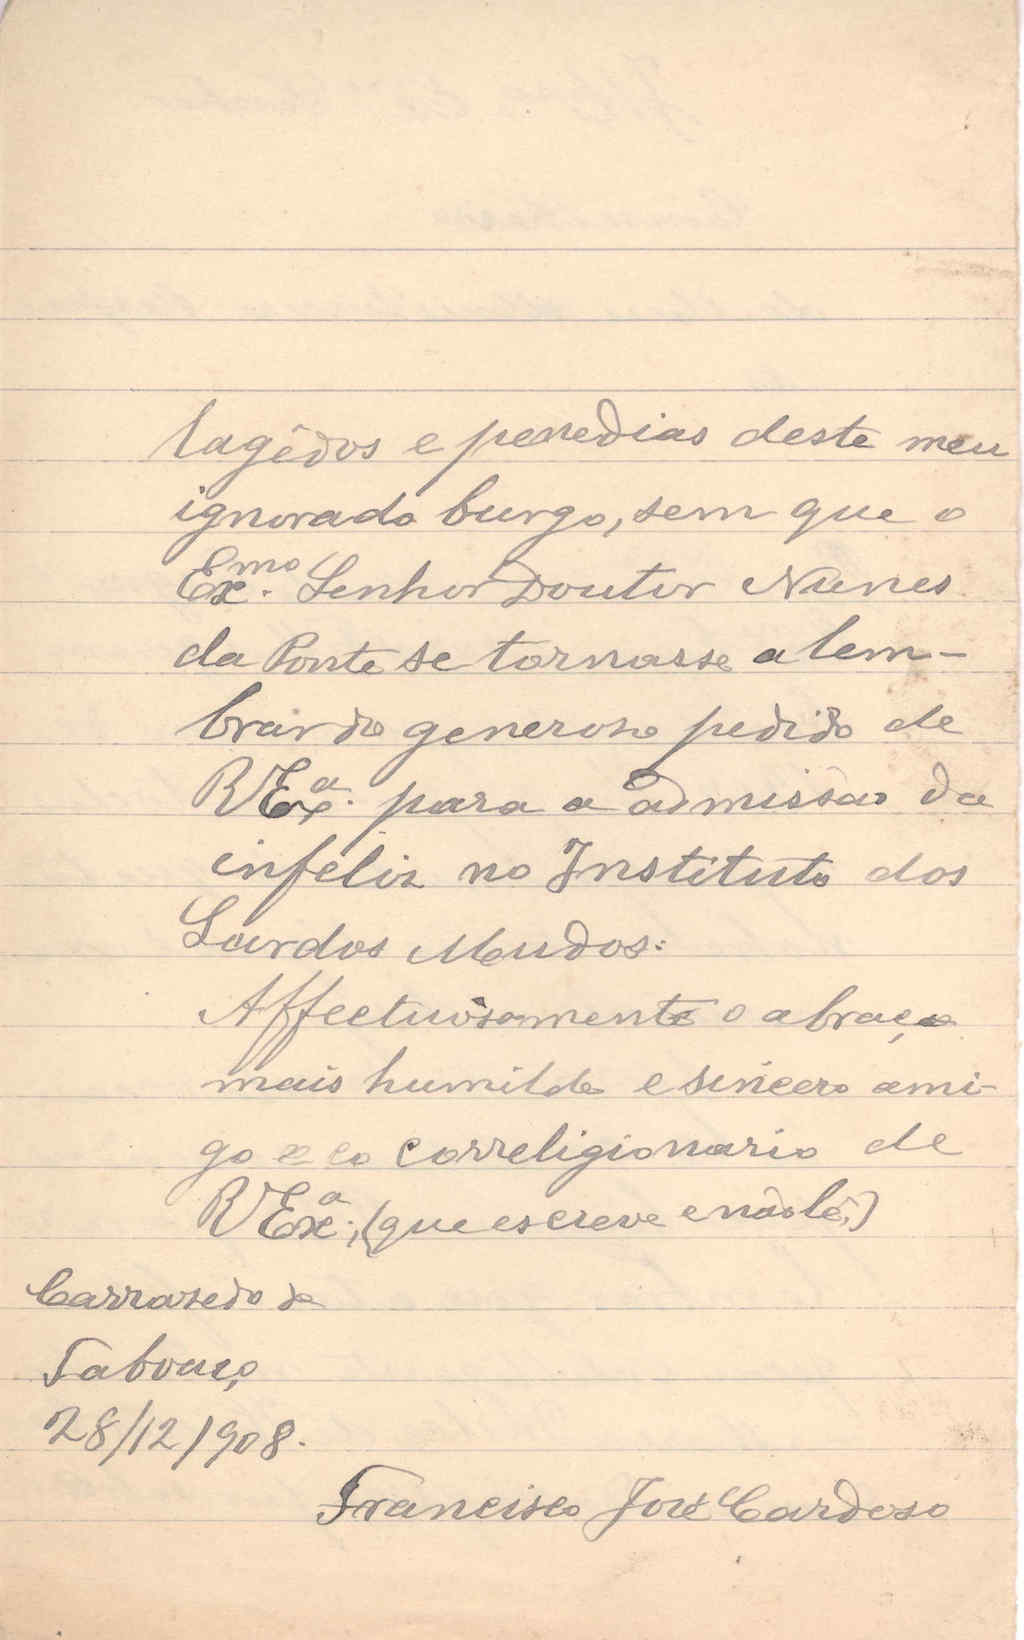 lagêdos e penedias deste meu
ignorado burgo, sem que o
Ex.mo Senhor Doutor Nunes
da Ponte se tornasse a lem-
brar do generoso pedido de
V Ex.a para a admissão da
infeliz no Instituto dos
Surdos Mudos:
Affectuosamente o abraça
mais humilde e sincero ami-
go e co correligionario de
V Ex.a; (que escreve e não lê;)
Carrazedo de
Tabouaço,
28/12/908.
Francisco José Cardoso